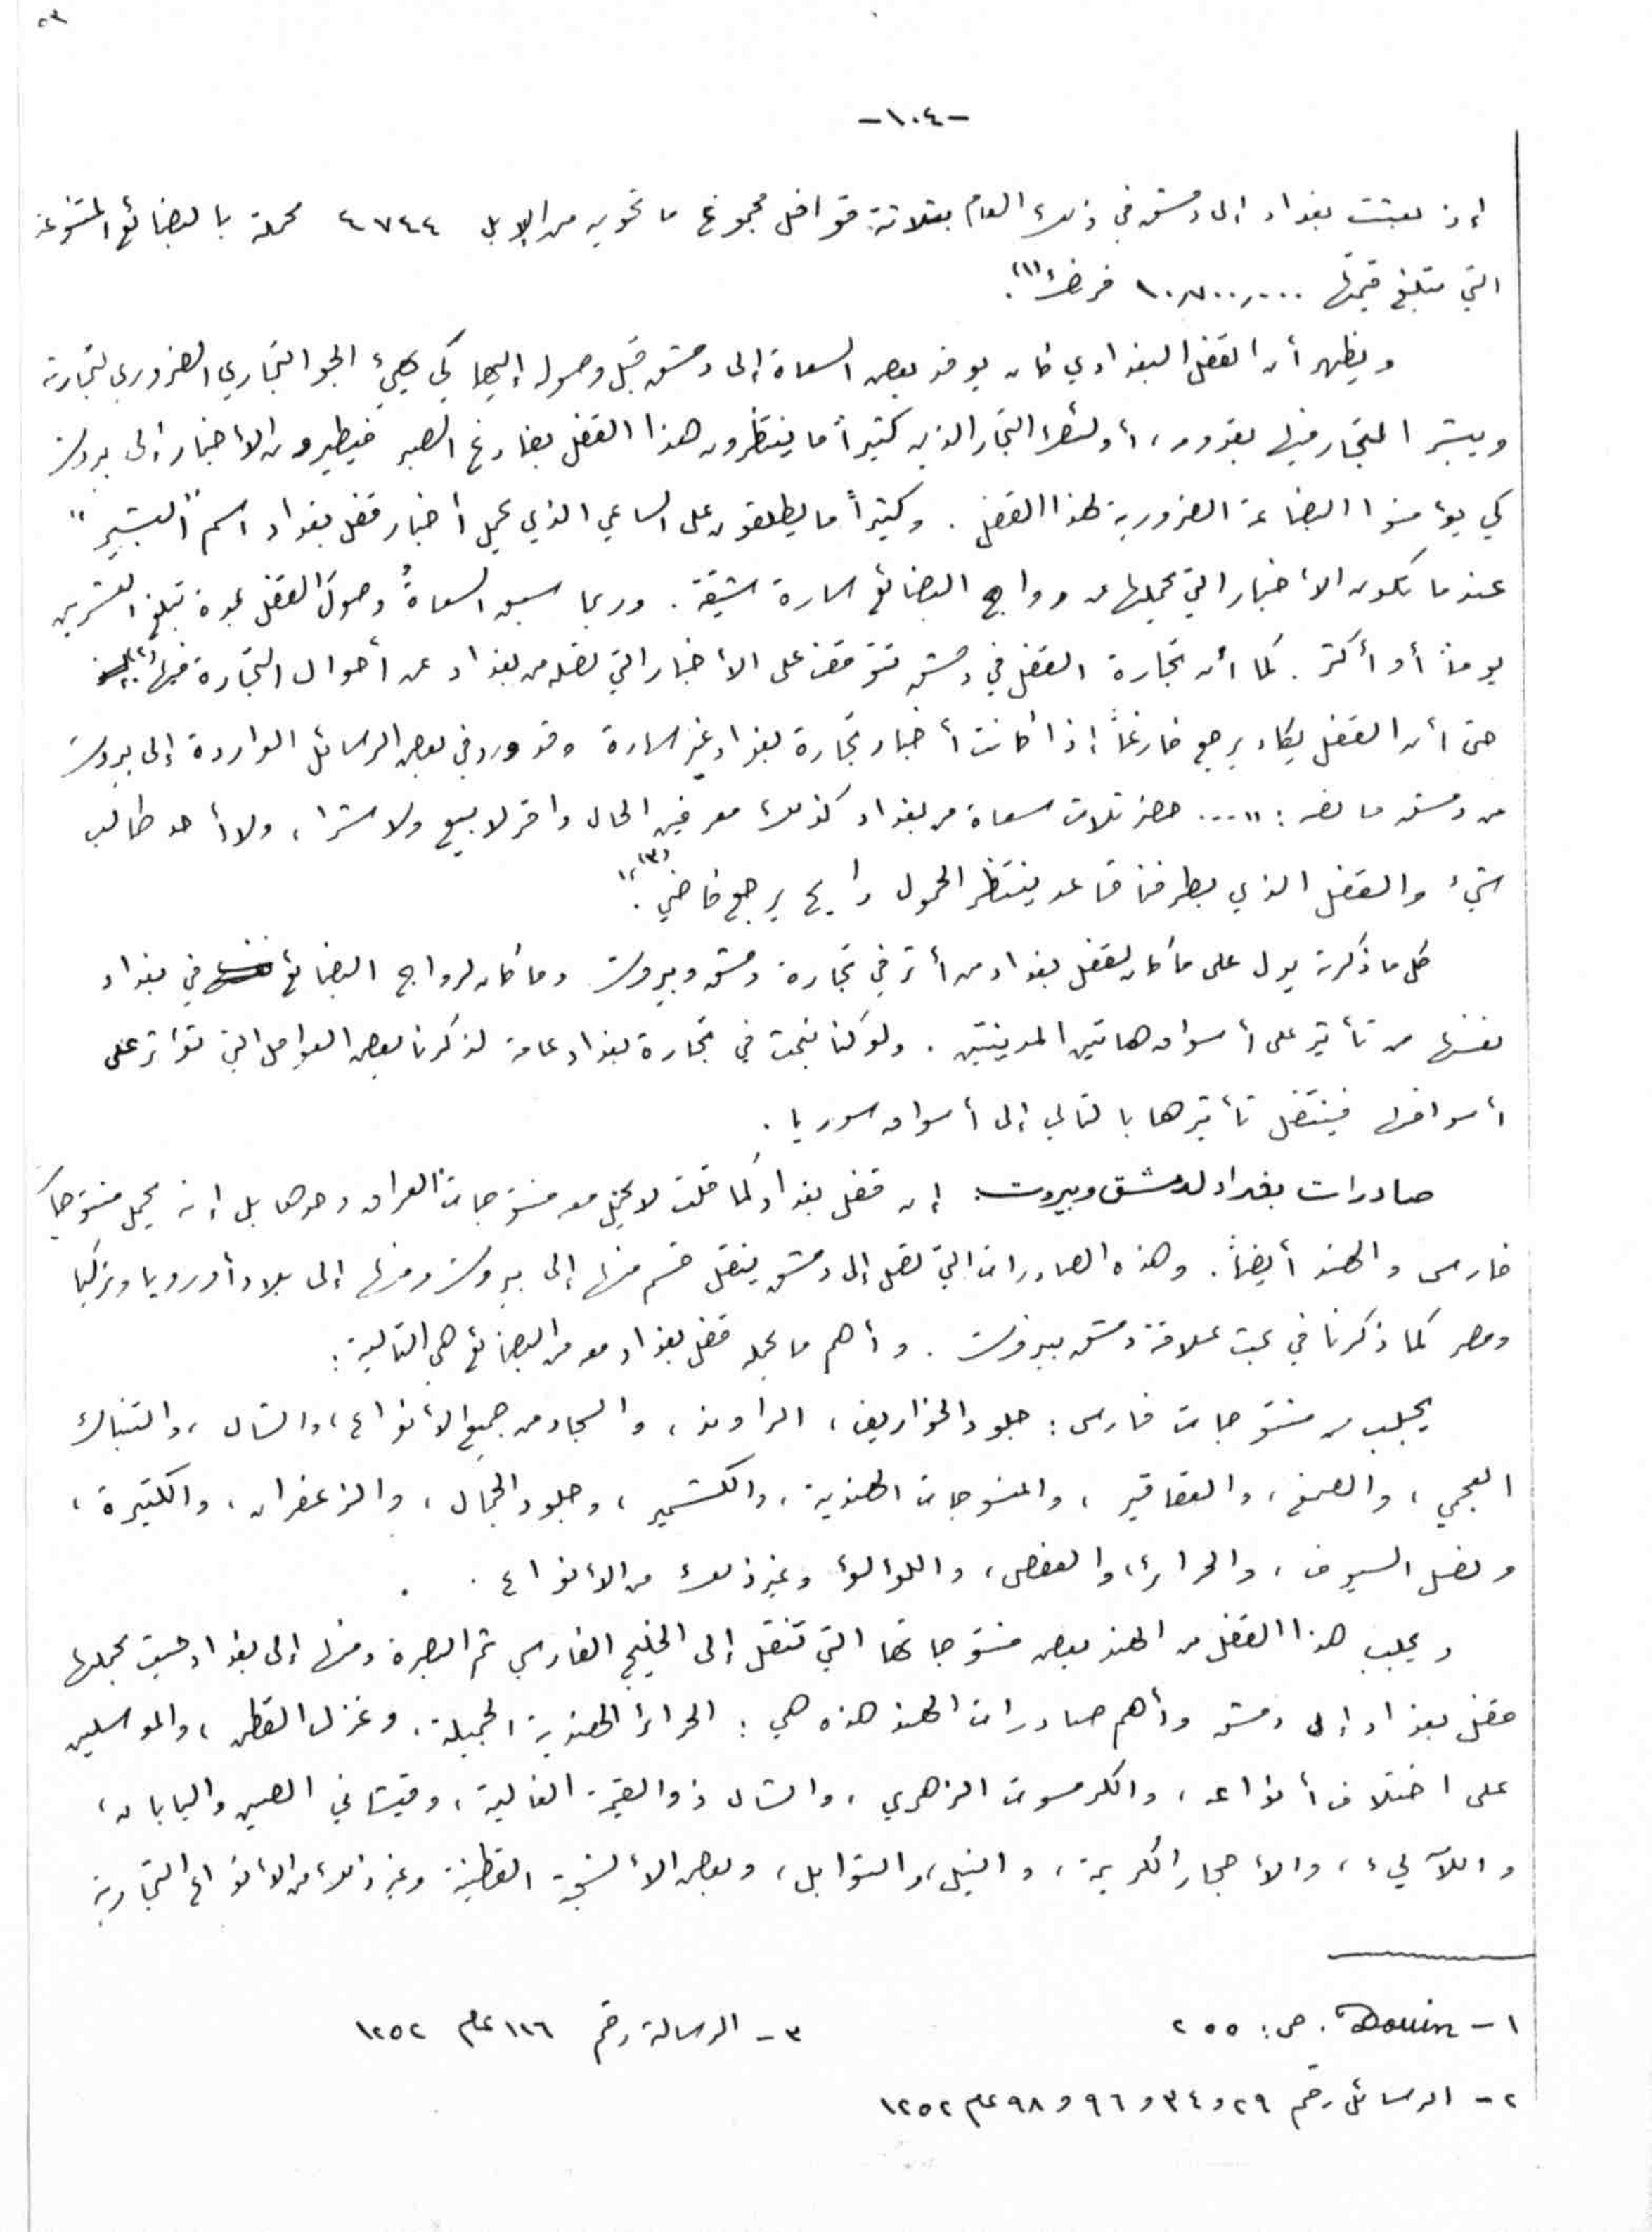 -١٠٤-
إذ بعثت بغداد إلى دمشق في ذلك العام بثلاثة قوافل مجموع ما تحويه من الإبل ٤٧٤٤ محملة بالبضائع المتنوعة
التي تبلغ قيمتها ١٠,٧٠٠,٠٠٠ فرنك(١).
ويظهر أن القفل البغدادي كان يوفد بعض السعاة إلى دمشق قبل وصوله إليها كي يهيئ الجو التجاري الضروري لتجارته
ويبشر التجار فيها بقدومه، أولئك التجار الذين كثيراً ما ينتظرون هذا القفل بفارغ الصبر فيطيرون الأخبار إلى بيروت
كي يؤمنوا البضاعة الضرورية لهذا القفل. وكثيراً ما يطلقون على الساعي الذي يحمل أخبار قفل بغداد اسم "البشير"
عندما تكون الأخبار التي يحملها عن رواج البضائع سارة شيقة. وربما سبق السعاةُ وصولَ القفل بمدة تبلغ العشرين
يوماً أو أكثر. كما أن تجارة القفل في دمشق تتوقف على الأخبار التي تصله من بغداد عن أحوال التجارة فيها(٢)
حتى أن القفل يكاد يرجع فارغاً إذا كانت أخبار تجارة بغداد غير سارة وقد ورد في بعض الرسائل الواردة إلى بيروت
من دمشق ما نصه: "... حضر ثلاث سعاة من بغداد كذلك معرفين الحال واقف لا بيع ولا شراء، ولا أحد طالب
شيء والقفل الذي بطرفنا قاعد ينتظر الحمول رايح يرجع فاضي(٣)."
كل ما ذكرته يدل على ما كان لقفل بغداد من أثر في تجارة دمشق وبيروت وما كان لرواج البضائع في بغداد
نفسها من تأثير على أسواق هاتين المدينتين. ولو كنا نبحث في تجارة بغداد عامة لذكرنا بعض العوامل التي تؤثر على
أسواقها فينتقل تأثيرها بالتالي إلى أسواق سوريا.
صادرات بغداد لدمشق وبيروت: إن قفل بغداد كما قلت لا يحمل معه منتوجات العراق وحدها بل إنه يحمل منتوجات
فارس والهند أيضاً. وهذه الصادرات التي تصل إلى دمشق ينقل قسم منها إلى بيروت ومنها إلى بلاد أوروبا وتركيا
ومصر كما ذكرنا في بحث علاقة دمشق ببيروت. وأهم ما يحمله قفل بغداد معه من البضائع هي التالية:
يجلب من منتوجات فارس: جلود الخواريف، الراوند، والسجاد من جميع الأنواع، والشال، والتنباك
العجمي، والصمغ، والعقاقير، والمنسوجات الهندية، والكشمير، وجلود الجمال، والزعفران، والكثيرة،
ونصل السيوف، والحرائر، والعفص، واللؤلؤ وغير ذلك من الأنواع.
ويجلب هذا القفل من الهند بعض منتوجاتها التي تنقل إلى الخليج الفارسي ثم البصرة ومنها إلى بغداد حيث يحملها
قفل بغداد إلى دمشق وأهم صادرات الهند هذه هي: الحرائر الهندية الجميلة، وغزل القطن، والموسلين
على اختلاف أنواعه، والكرمسوت الزهري، والشال ذو القيمة الغالية، وقيشاني الصين واليابان،
واللآلىء، والأحجار الكريمة، والنيل، والتوابل، وبعض الأنسجة القطنية وغير ذلك من الأنواع التجارية
١- Douin. ص: ٢٥٥
٢- الرسائل رقم ٢٩ و ٣٤ و ٩٦ و ٩٨ عام ١٢٥٢
٣- الرسالة رقم ١١٦ عام ١٢٥٢